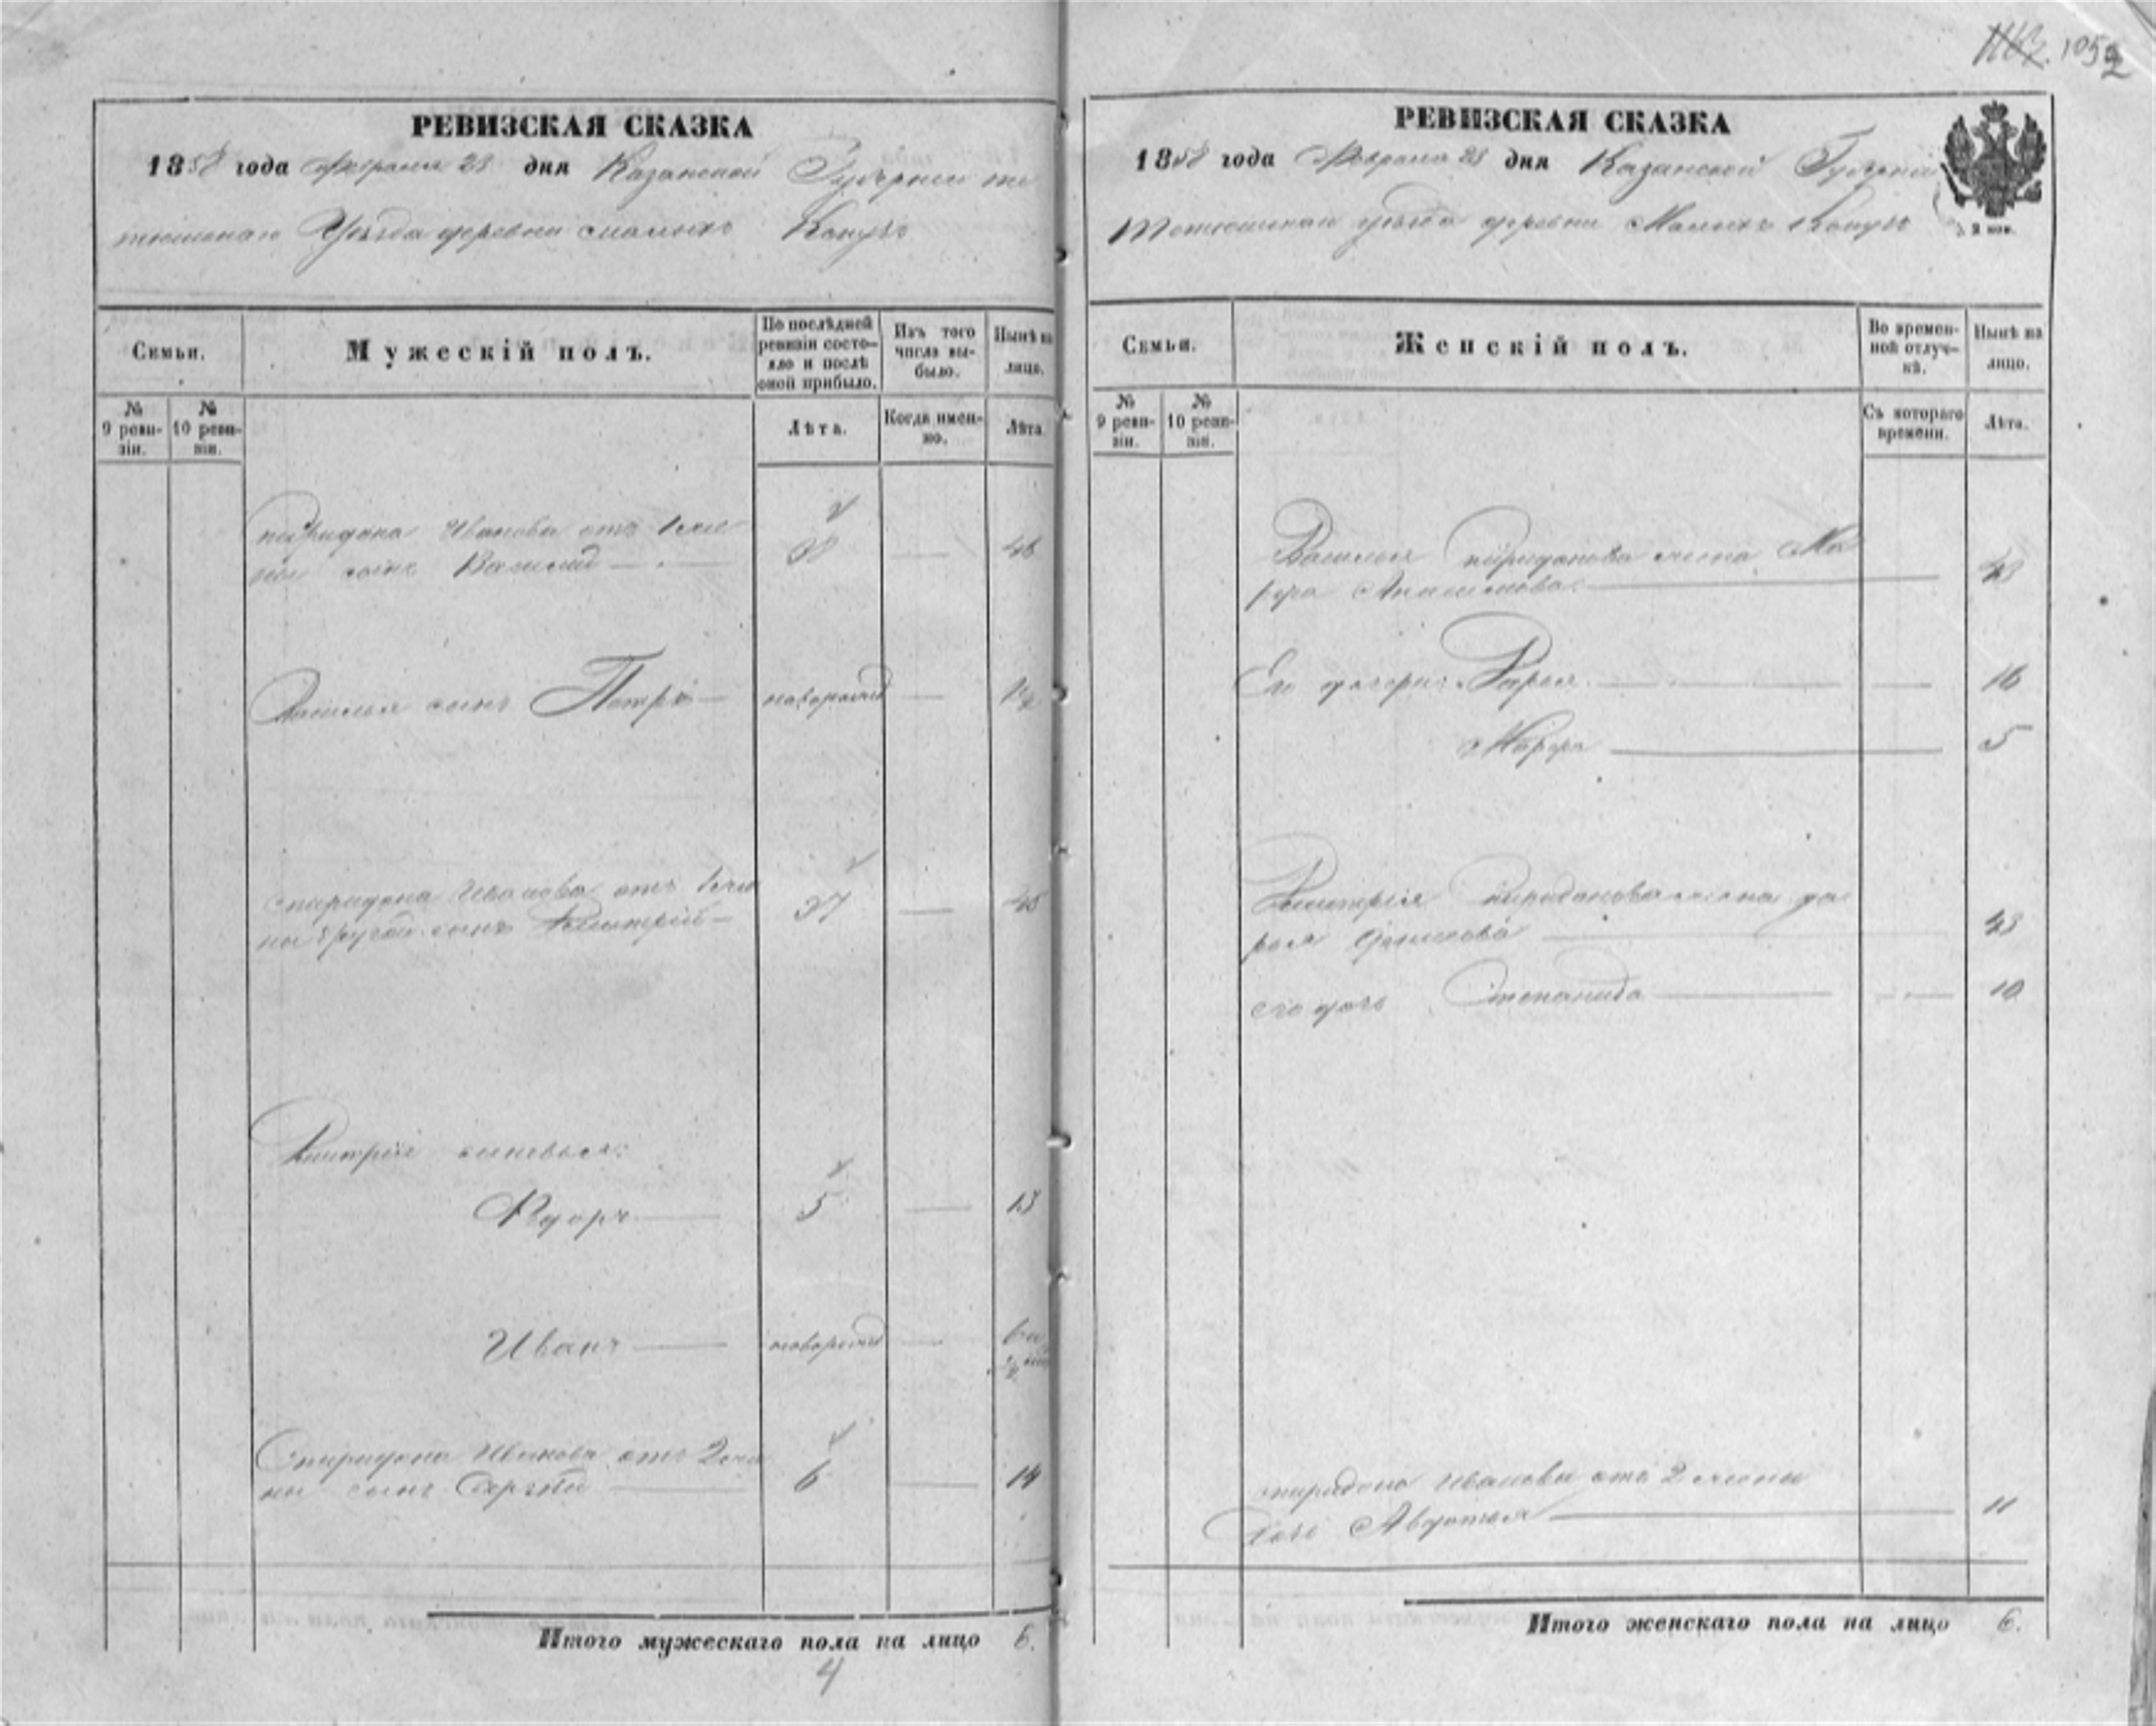 1052
РЕВИЗСКАЯ СКАЗКА
1858 года Февраля 28 дня Казанской Губернии те
тюшскаго Уѣзда деревни малыхъ
Семьи.
Мужескій полъ.
По послѣдней ревизіи состояло и послѣ оной прибыло.
Изъ того числа выбыло.
Нынѣ на лицо.
№ 9 ревизіи.
№ 10 ревизіи.
Лѣта.
Когда именно.
Лѣта
Иванова отъ 1 же
ны сынъ Василий 38 46
Василья сынъ Петръ новорожд
спиридона Иванова отъ 1 же
ны другой сынъ Дмитрій 37 45
Дмитрія сыновья:
Ѳедоръ 5 13
Иванъ новорожд
Спиридона Иванова отъ 2 же
ны сынъ Сергѣй 6 14
Итого мужескаго пола на лицо 6.
4
РЕВИЗСКАЯ СКАЗКА
1858 года Февраля 28 дня Казанской Губерніи
Тетюшскаго уѣзда деревни Малыхъ
2 коп.
Семьи.
Женскій полъ.
Во временной отлучкѣ.
Нынѣ на лицо.
№ 9 ревизіи.
№ 10 ревизіи.
Съ котораго времени.
Лѣта.
Василья жена Ма
43
Его дочери: Дарья 16
Марфа 5
Дмитрія жена да
рья 43
его дочь Степанида 10
спиридона Иванова отъ 2 жены
дочь Авдотья 11
Итого женскаго пола на лицо 6.